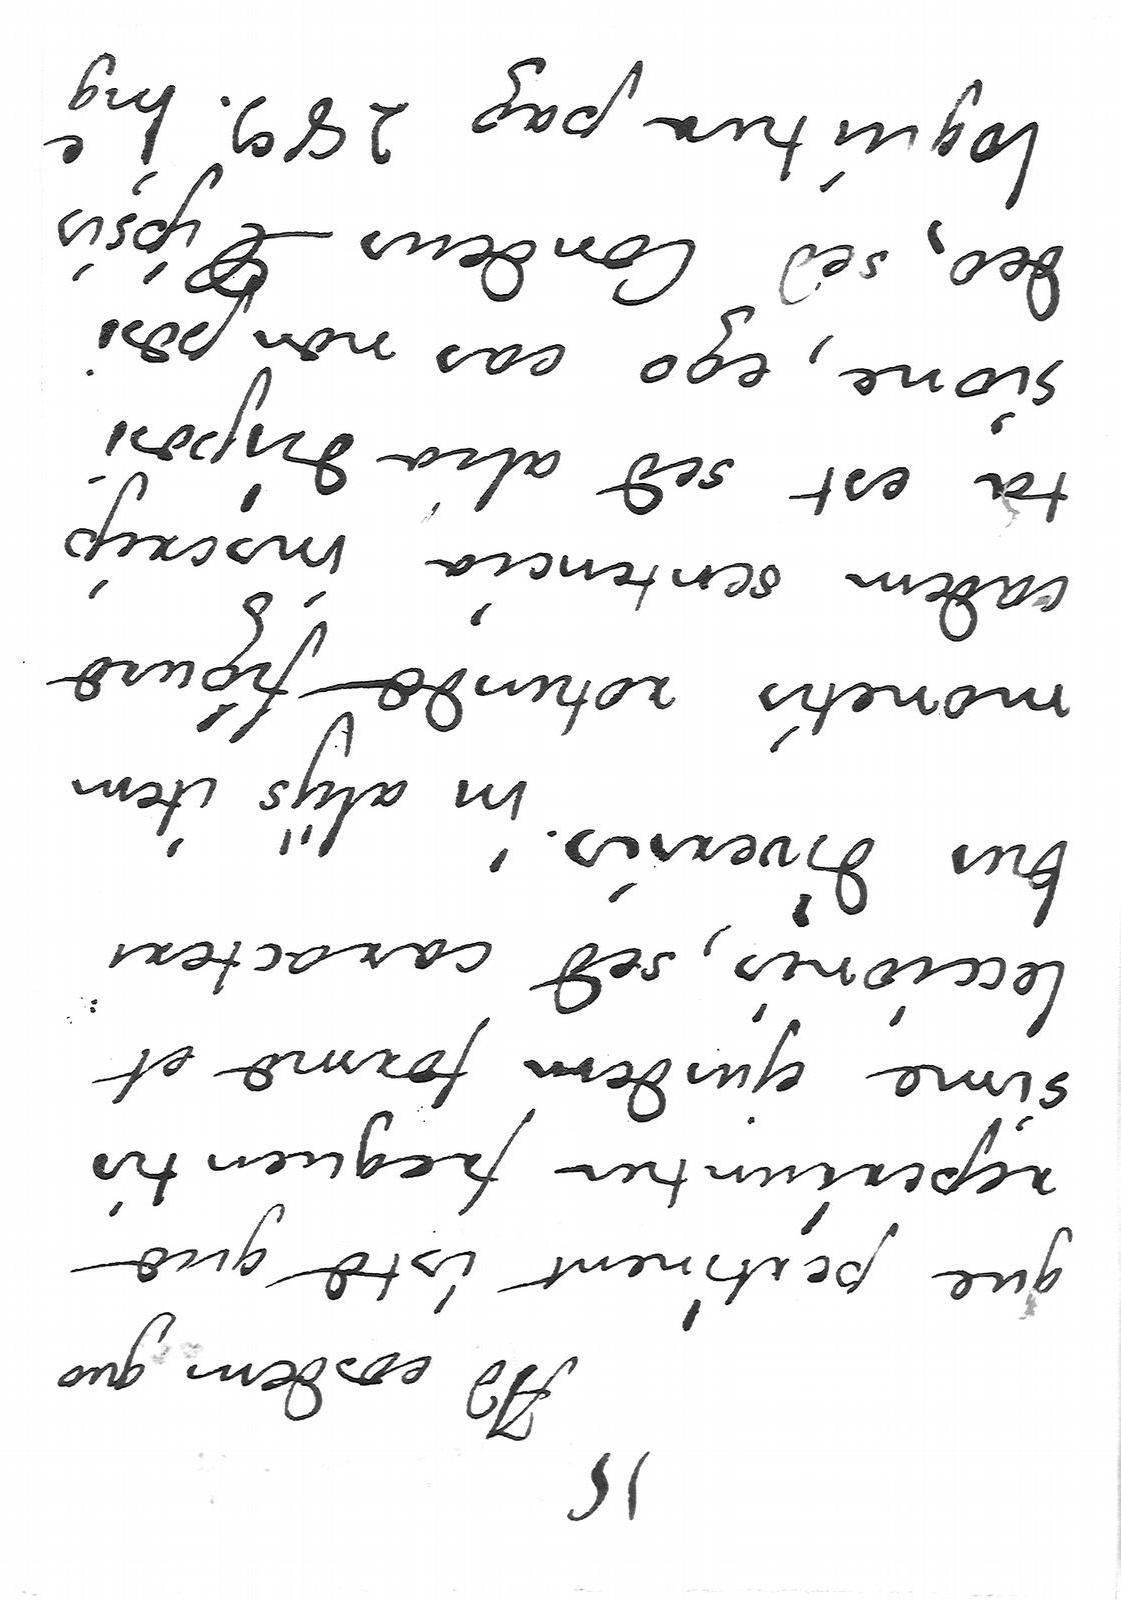 15
Ad eosdem quo
que pertinent istæ quæ
reperiuntur frequentis
sime ejusdem formæ et
leccionis, sed caracteri
bus diversis. In alijs item
monetis rotundæ figuræ
eadem sentencia inscrip
ta est sed alia disposi
sione, ego eas non posi
deo, sed Condeus & ipsis
loquitur pag 289. Hig
e